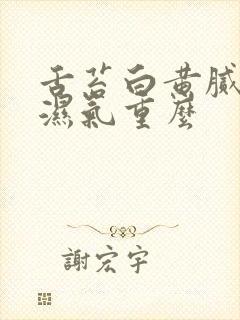 舌苔白黄膩
濕氣重麼
謝宏宇